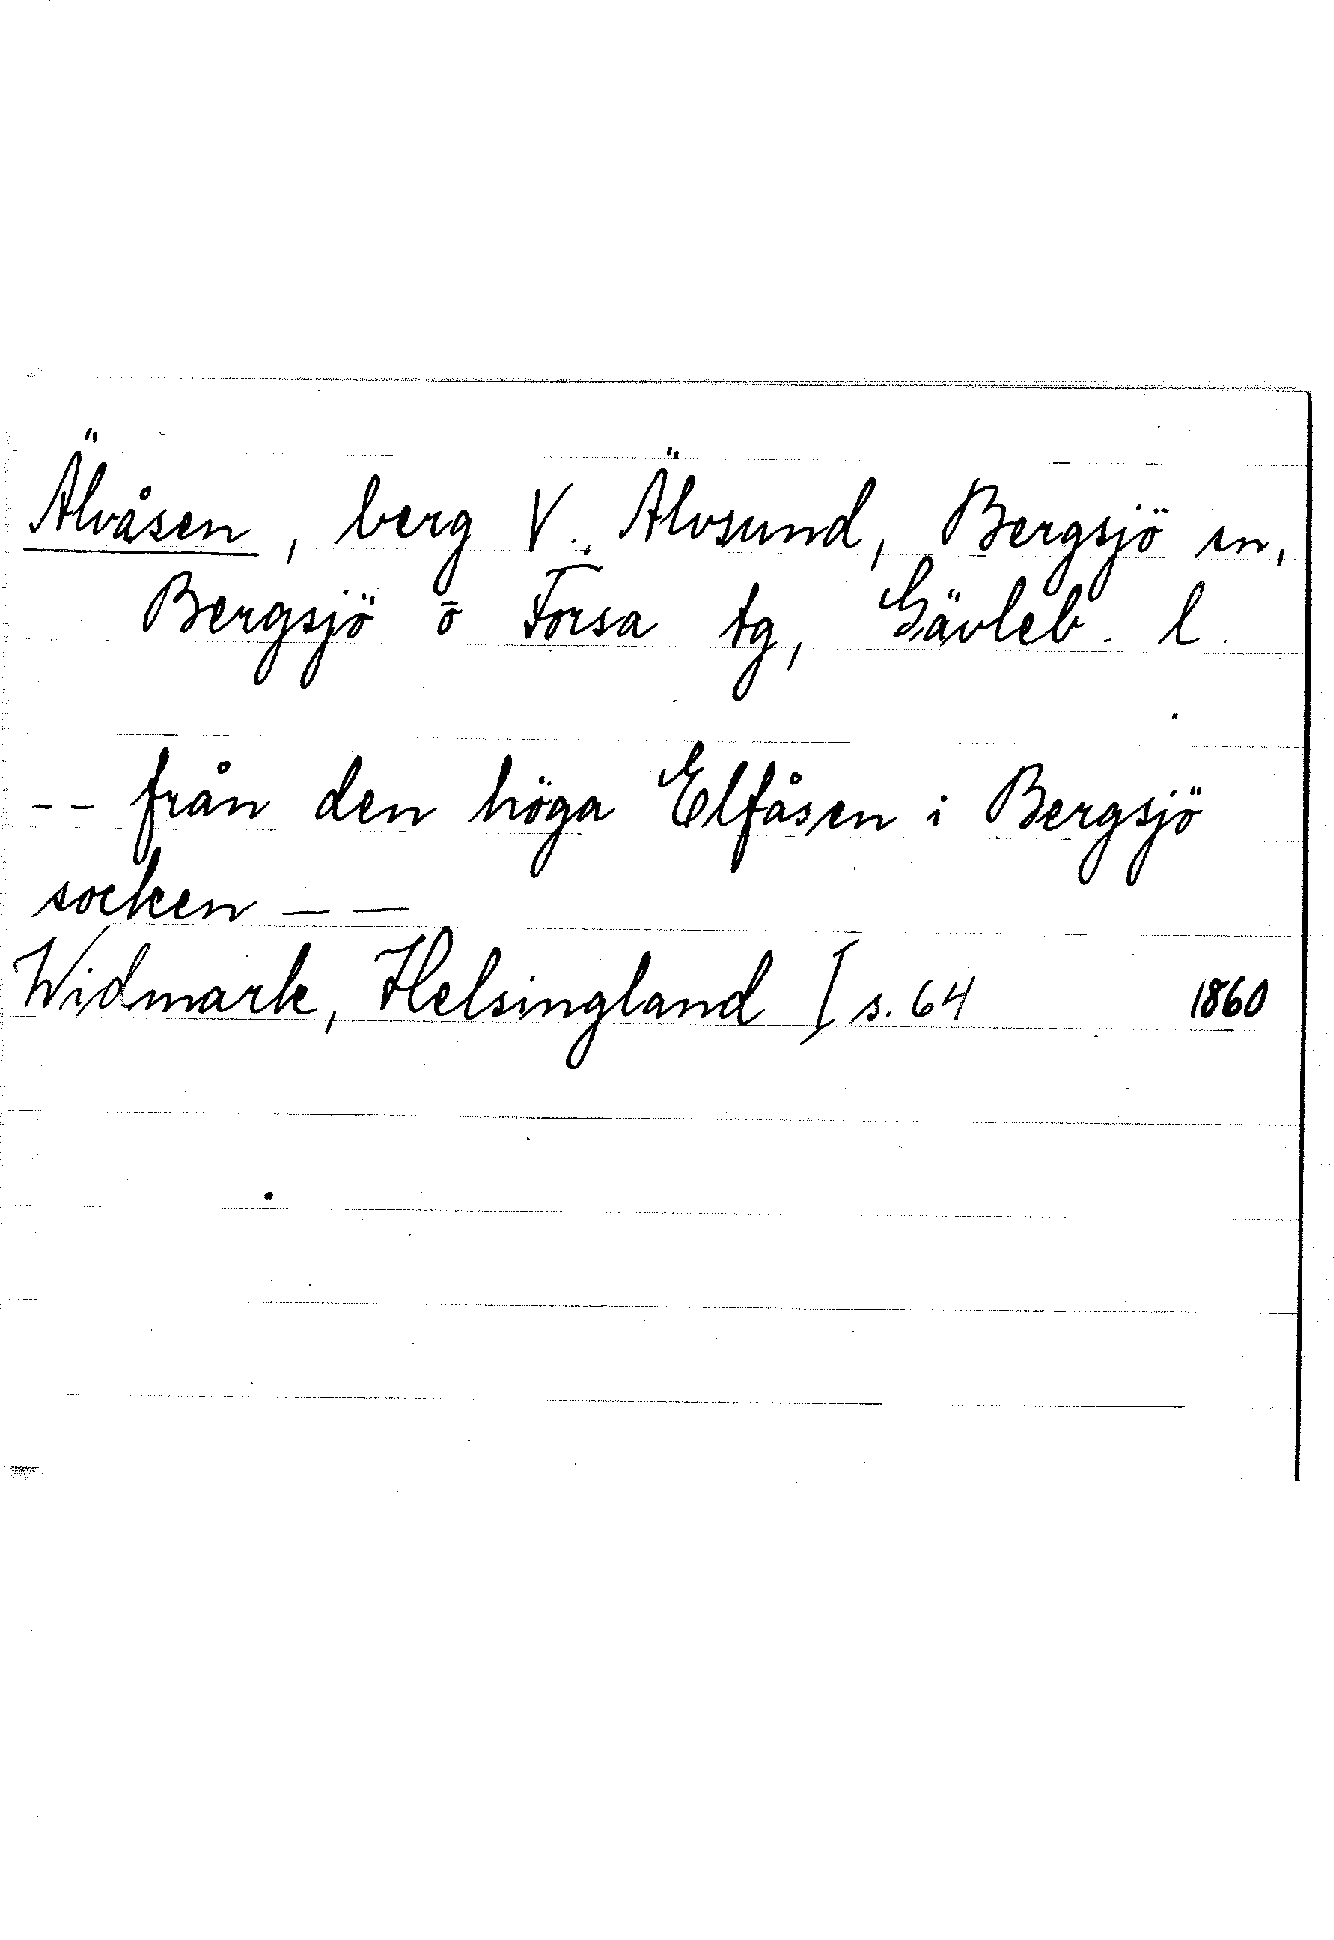 Älvåsen, berg V. Älvsund, Bergsjö sn,
Bergsjö o Forsa tg, Gävleb. l.
-- från den höga Elfåsen i Bergsjö
socken — —
Widmark, Helsingland I s. 64 1860